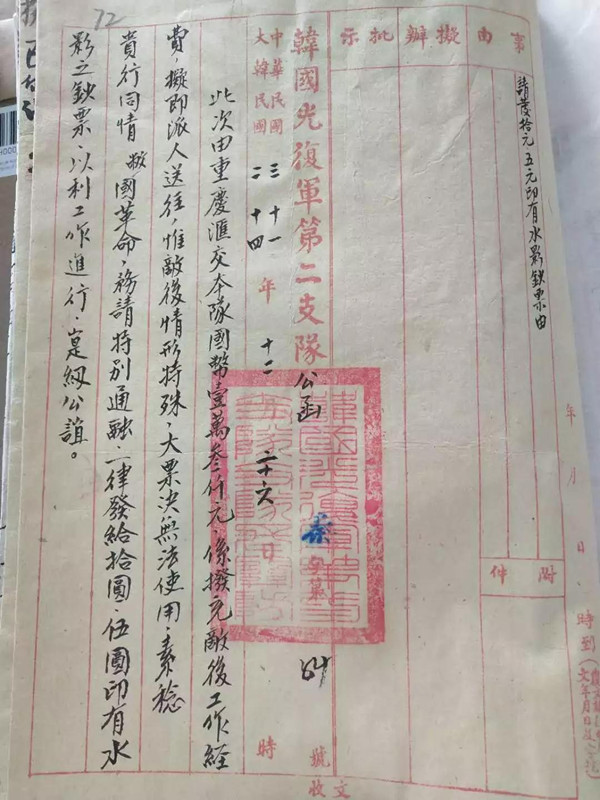 72
事由
擬辦
批示
請發拾元五元印有水影鈔票由
附件
年 月 日 時到
韓國光復軍第二支隊 公函
字第 號
中華民國 三十一
大韓民國 二十四
年 十二 月 二十六 日 時
此次由重慶滙交本隊國幣壹萬叁仟元，係撥充敵後工作經
費，擬即派人送往，惟敵後情形特殊，大票決無法使用，素稔
貴行同情敝國革命，務請特別通融，一律發給拾圓、伍圓印有水
影之鈔票，以利工作進行，寔紉公誼。
收文